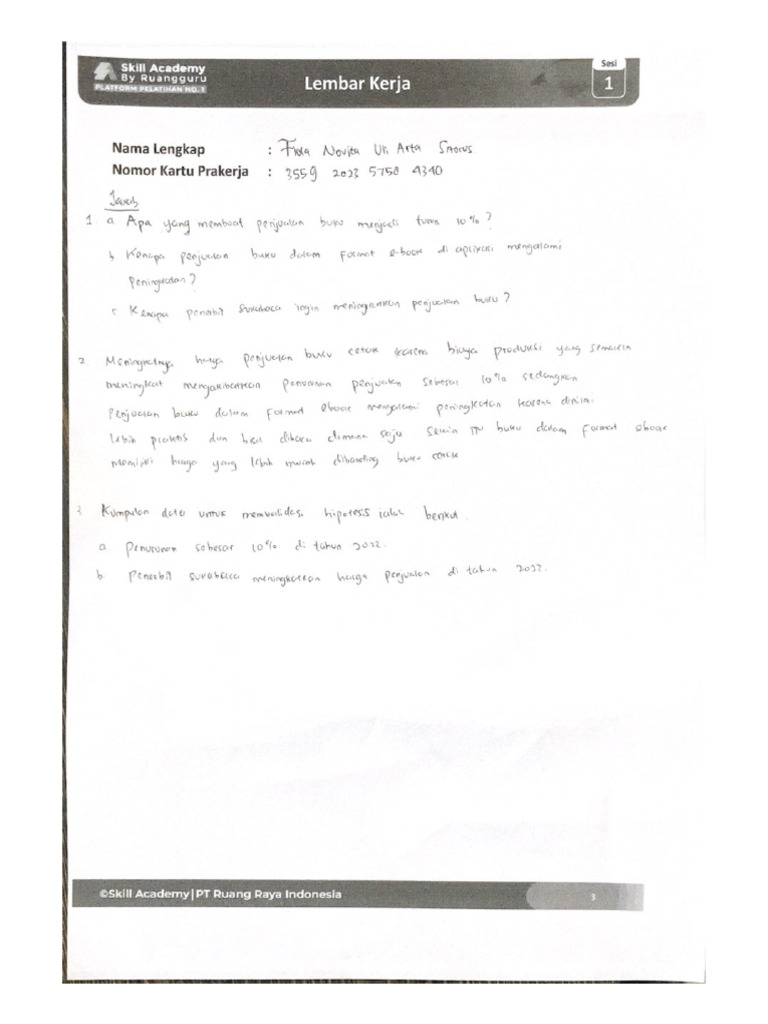 Skill Academy
By Ruangguru
PLATFORM PELATIHAN NO. 1
Lembar Kerja
Sesi
1
Nama Lengkap : Novita Uli Arta
Nomor Kartu Prakerja : 3559 2023 5758 4340
Jawab
1 a Apa yang membuat penjualan buku menjadi turun 10%?
b Kenapa penjualan buku dalam format e-book di aplikasi mengalami
peningkatan?
c Kenapa penerbit surabaca ingin meningkatkan penjualan buku?
2. Meningkatnya harga penjualan buku cetak karena biaya produksi yang semakin
meningkat mengakibatkan penurunan penjualan sebesar 10% sedangkan
penjualan buku dalam format ebook mengalami peningkatan karena dinilai
lebih praktis dan bisa dibaca dimana saja selain itu buku dalam format ebook
memiliki harga yang lebih murah dibanding buku cetak
3 Kumpulan data untuk memvalidasi hipotesis ialah berikut.
a Penurunan sebesar 10% di tahun 2022.
b. Penerbit surabaca meningkatkan harga penjualan di tahun 2022.
©Skill Academy|PT Ruang Raya Indonesia
3